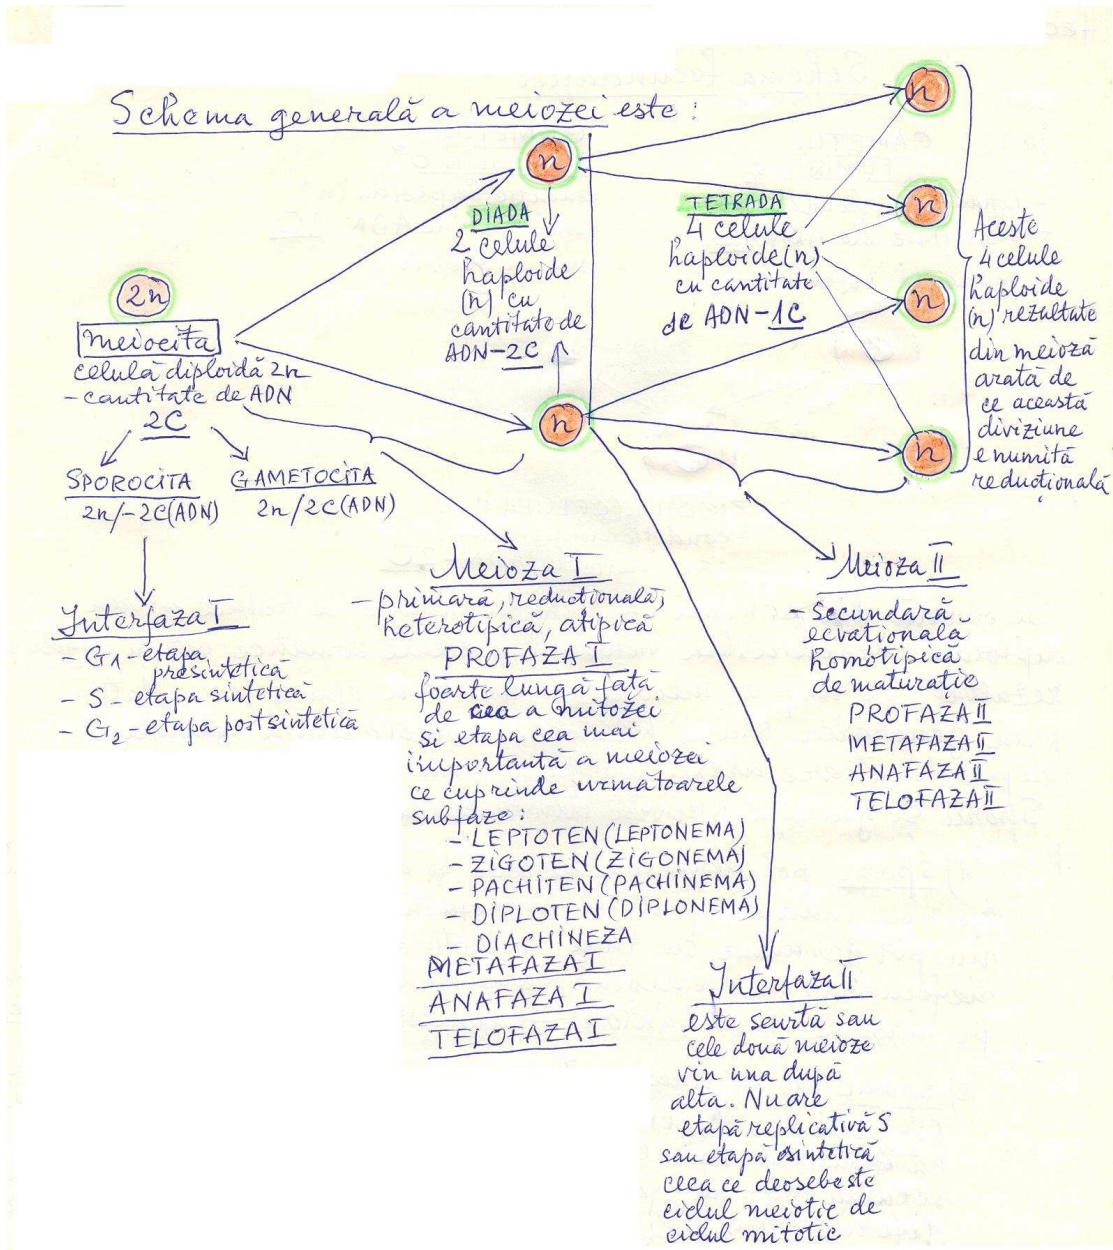 Schema generală a meiozei este:
2n
meiocita
celulă diploidă 2n
- cantitate de ADN
2C
SPOROCITA
2n/-2C(ADN)
GAMETOCITA
2n/2C(ADN)
Interfaza I
- G1 - etapa
presintetică
- S - etapa sintetică
- G2 - etapa postsintetică
n
DIADA
2 celule
haploide
(n) cu
cantitate de
ADN-2C
n
TETRADA
4 celule
haploide(n)
cu cantitate
de ADN-1C
n
n
n
n
Aceste
4 celule
haploide
(n) rezultate
din meioză
arată de
ce această
diviziune
e numită
reducțională
Meioza I
- primară, reducțională,
heterotipică, atipică
PROFAZA I
foarte lungă față
de cea a mitozei
si etapa cea mai
importantă a meiozei
ce cuprinde următoarele
subfaze:
- LEPTOTEN (LEPTONEMA)
- ZIGOTEN (ZIGONEMA)
- PACHITEN (PACHINEMA)
- DIPLOTEN (DIPLONEMA)
- DIACHINEZA
METAFAZA I
ANAFAZA I
TELOFAZA I
Meioza II
- Secundară
ecvațională
homotipică
de maturație
PROFAZA II
METAFAZA II
ANAFAZA II
TELOFAZA II
Interfaza II
este scurtă sau
cele două meioze
vin una după
alta. Nu are
etapă replicativă S
sau etapă sintetică
ceea ce deosebeste
ciclul meiotic de
ciclul mitotic